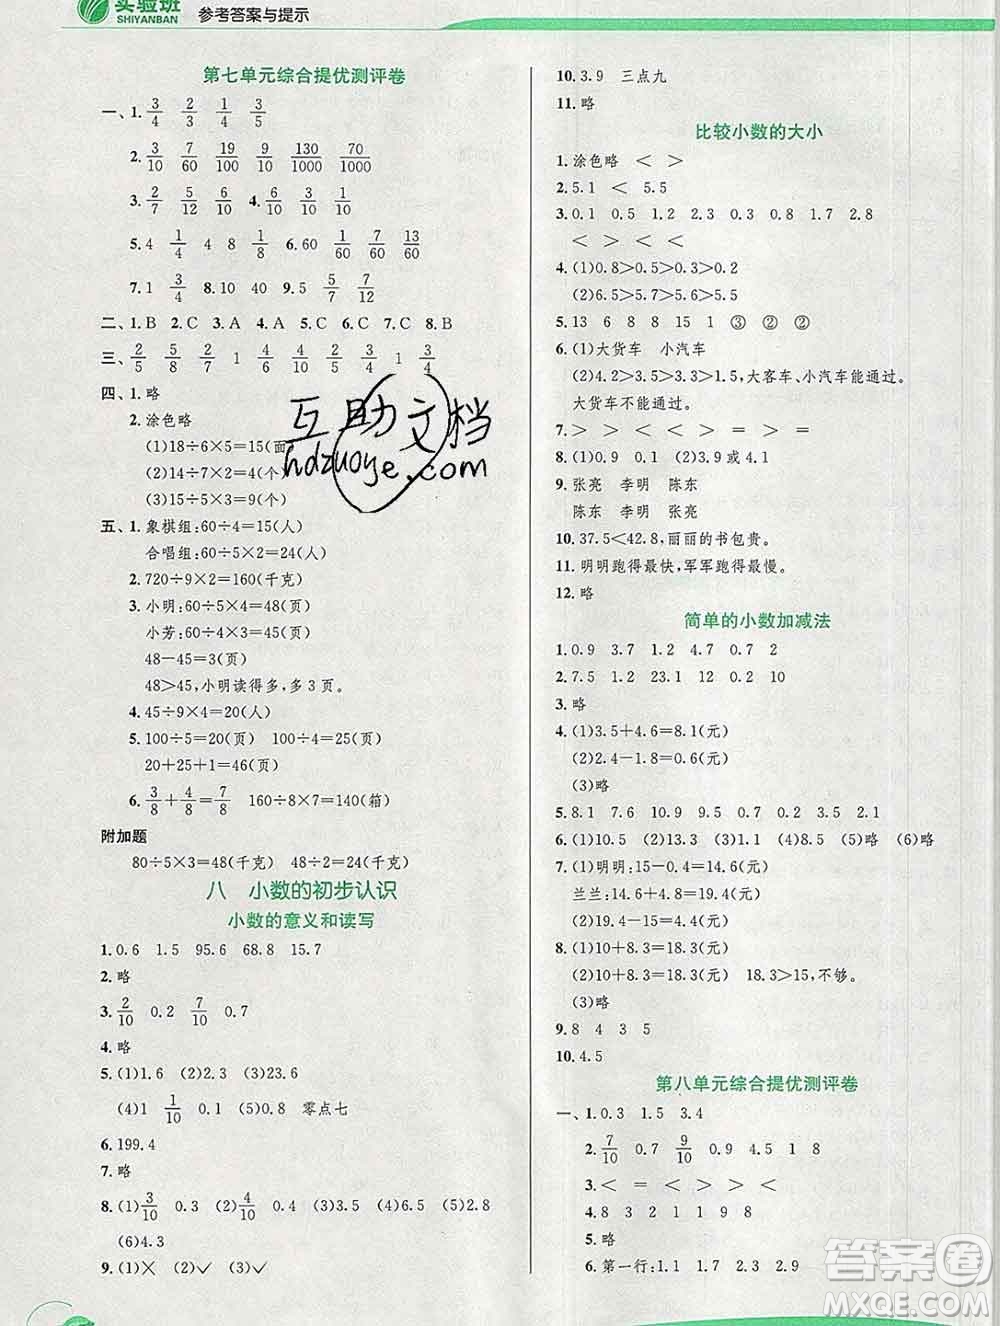 实验班
SHIYANBAN
参考答案与提示
第七单元综合提优测评卷
一、1. 3/4 2/3 1/4 3/5
2. 3/10 7/60 19/100 9/10 130/1000 70/1000
3. 2/7 5/12 6/10 4. 6/10 3/10
5. 4 1/4 4 8 1/8 6. 60 1/60 7/60 13/60
7. 1 3/4 8. 10 40 9. 5 5/7 7/12
二、1. B 2. C 3. A 4. A 5. C 6. B 7. C 8. B
三、2/5 5/8 2/7 1 4/6 2/8 5/5 3/4 1 3/4
四、1. 略
2. 涂色略
(1)18÷6×5=15(面)
(2)14÷7×2=4(个)
(3)15÷5×3=9(个)
五、1. 象棋组:60÷4=15(人)
合唱组:60÷5×2=24(人)
2. 720÷9×2=160(千克)
3. 小明:60÷5×4=48(页)
小芳:60÷4×3=45(页)
48-45=3(页)
48>45,小明读得多,多3页。
4. 45÷9×4=20(人)
5. 100÷5=20(页) 100÷4=25(页)
20+25+1=46(页)
6. 3/8+4/8=7/8 160÷8×7=140(箱)
附加题
80÷5×3=48(千克) 48÷2=24(千克)
八 小数的初步认识
小数的意义和读写
1. 0.6 1.5 95.6 68.8 15.7
2. 略
3. 2/10 0.2 7/10 0.7
4. 略
5. (1)1.6 (2)2.3 (3)2.6
(4)1 1/10 0.1 (5)0.8 零点七
6. 199.4
7. 略
8. (1)3/10 0.3 (2)4/10 0.4 (3)3.5 (4)6.5 (5)2.8
(6)4.3
9. (1)× (2)✓ (3)✓
10. 3.9 三点九
11. 略
比较小数的大小
1. 涂色略 < >
2. 5.1 < 5.5
3. 0.1 0.5 1.2 2.3 0.3 0.8 1.7 2.8
< > < <
4. (1)0.8>0.5>0.3>0.2
(2)6.5>5.7>5.6>5.5
5. 13 6 8 8 15 1 ③ ② ②
6. (1)大货车 小汽车
(2)4.2>3.5>3.3>1.5,大客车、小汽车能通过。
大货车不能通过。
7. > > < > < = > <
8. (1)0.9 0.1 (2)3.9或4.1
9. 张亮 李明 陈东
陈东 李明 张亮
10. 37.5<42.8,丽丽的书包贵。
11. 明明跑得最快,军军跑得最慢。
12. 略
简单的小数加减法
1. 0.9 3.7 1.2 4.7 0.7 2
2. 7.5 1.8 23.1 12 0.2 10
3. 略
4. (1)3.5+4.6=8.1(元)
(2)2.4-1.8=0.6(元)
(3)略
5. 8.1 7.6 10.9 9.5 0.7 0.2 3.5 2.1
6. (1)10.5 (2)13.3 (3)1.1 (4)8.5 (5)略 (6)略
7. (1)明明:15-0.4=14.6(元)
兰兰:14.6+4.8=19.4(元)
(2)19.4-15=4.4(元)
8. (1)10+8.3=18.3(元)
(2)10+8.3=18.3(元) 18.3>15,不够。
(3)略
9. 8 4 3 5
10. 4.5
第八单元综合提优测评卷
一、1. 0.3 1.5 3.4
2. 7/10 0.7 9/10 0.9 4.5 1.8
3. < = < > > <
4. 8 3 2 1 1 9 8
5. 略
6. 第一行:1.1 2.3 2.9
互助文档
hdzuoye.com
答案圈
MXQE.COM